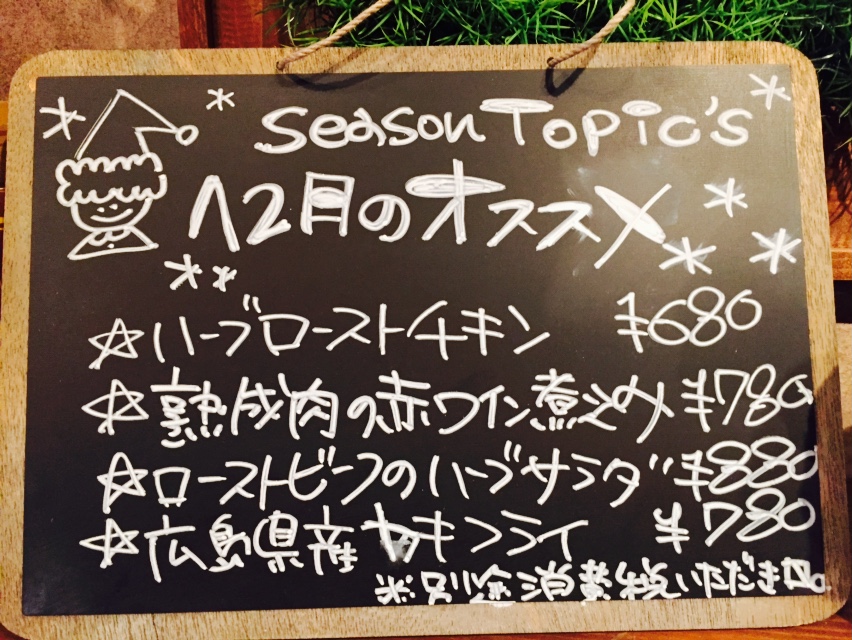 Season Topic's
12月のオススメ
☆ハーブローストチキン ¥680
☆熟成肉の赤ワイン煮込み ¥780
☆ローストビーフのハーブサラダ ¥880
☆広島県産カキフライ ¥780
※別途消費税いただきます。